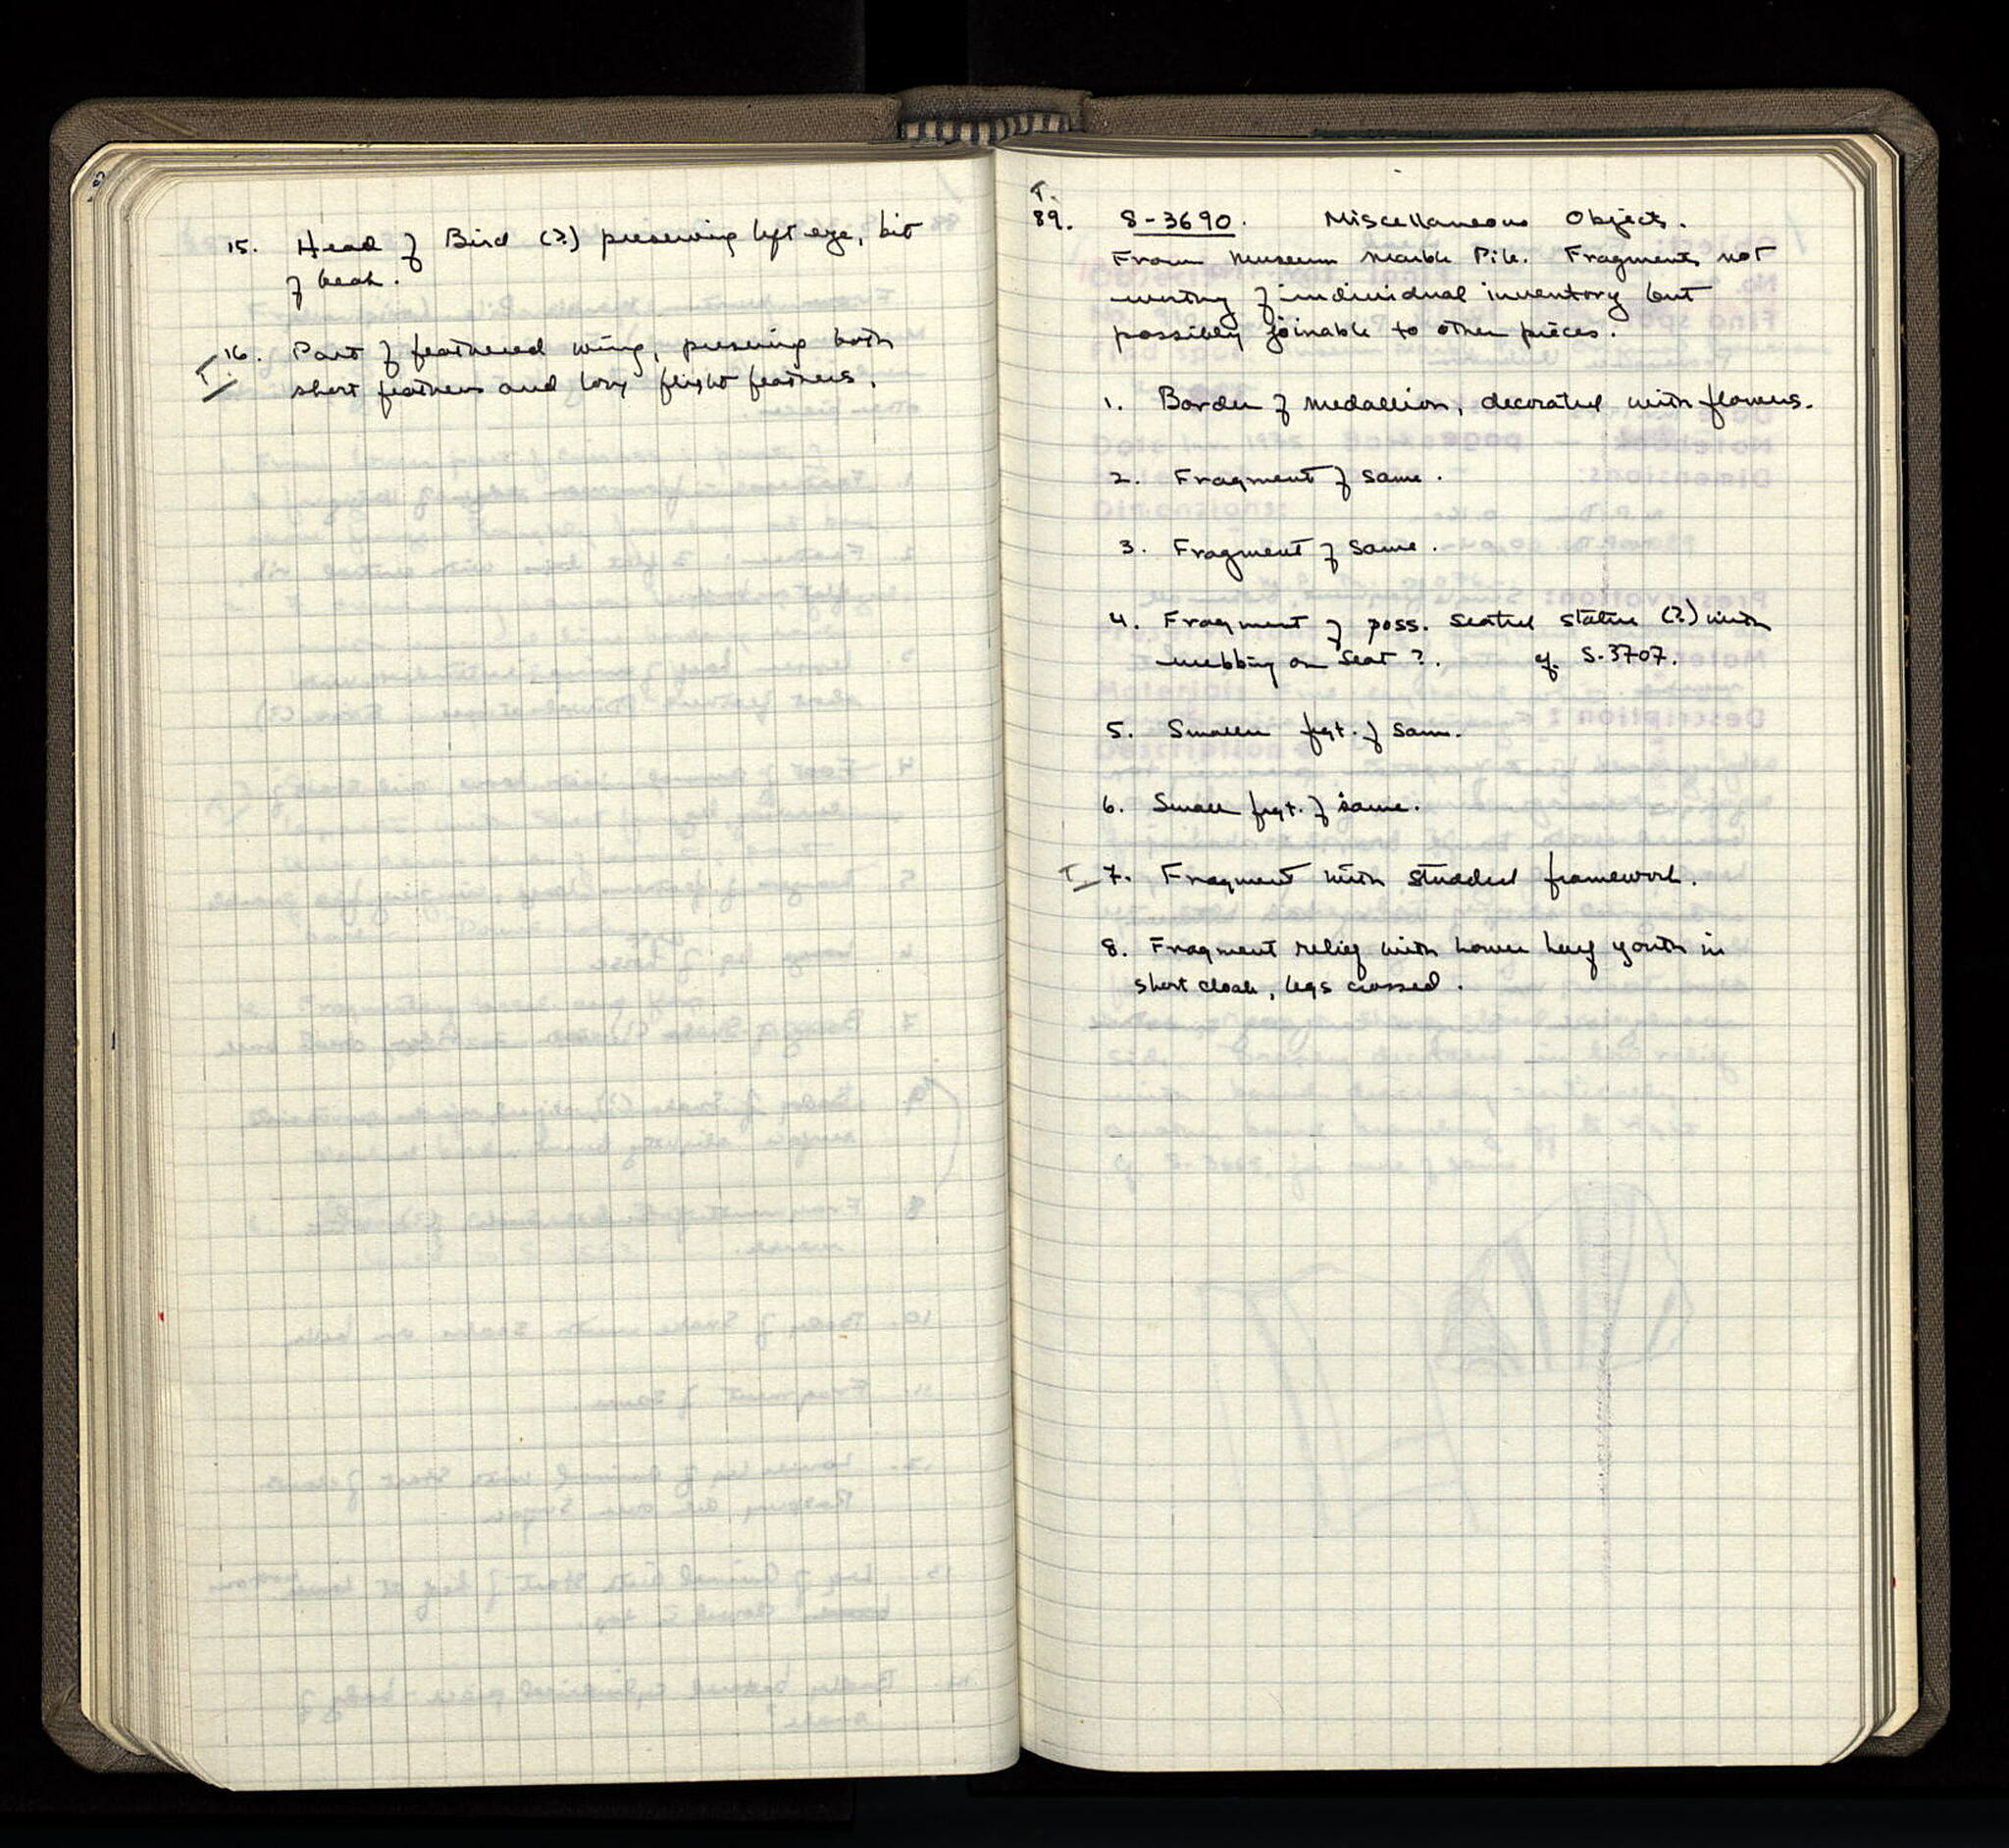 15. Head of Bird (?) preserving left eye, bit
of beak.
T. 16. Part of feathered wing, preserving both
short feathers and long flight feathers.
T.
89. S-3690. Miscellaneous Objects.
From Museum Marble Pile. Fragments not
worthy of individual inventory but
possibly joinable to other pieces.
1. Border of medallion, decorated with flowers.
2. Fragment of same.
3. Fragment of same.
4. Fragment of poss. seated statue (?) with
webbing on seat ?. cf. S-3707.
5. Smaller frgt. of same.
6. Small frgt. of same.
T. 7. Fragment with studded framework.
8. Fragment relief with lower half youth in
short cloak, legs crossed.